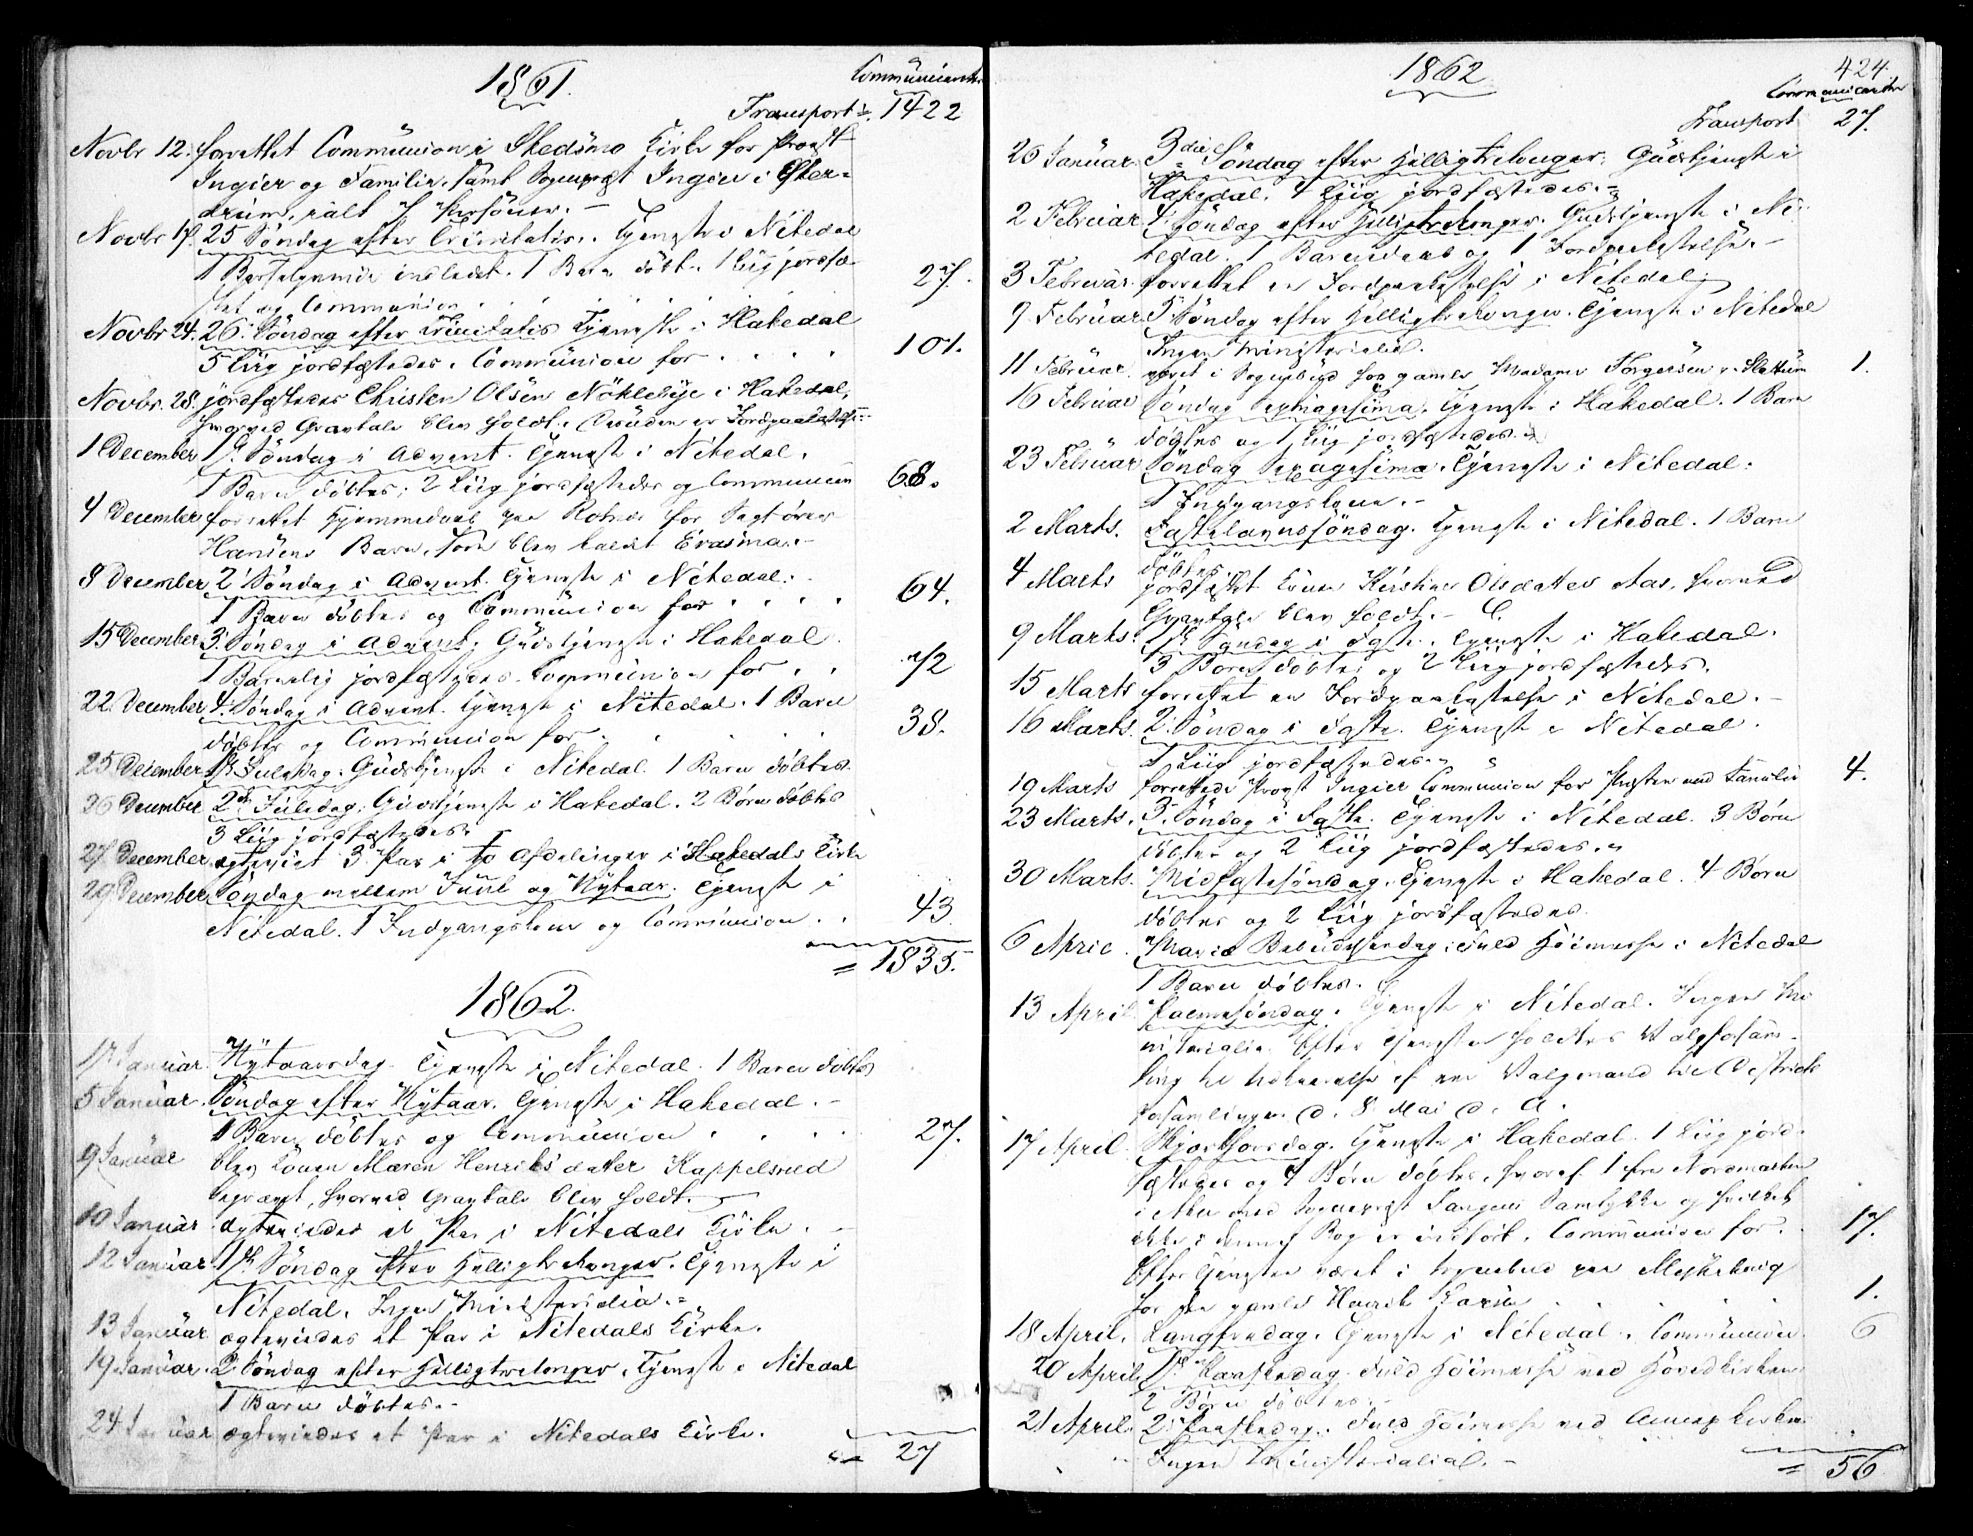 1861.
Communicanter
Transport: 1422
Novbr 12. forrettet Communion i Skedsmo Kirke for Provst
Ingier og Familie, samt Sognepræst Ingier i Gjer=
drum, ialt 7 Personer. –
Novbr 17. 25 Søndag efter Trinitatis. Tjeneste i Nitedal
1 Barselqvinde indledet. 1 Barn døbt. 1 Liig jordfæ-
stet og Communion . . . . . . 27.
Novbr 24. 26. Søndag efter Trinitatis Tjeneste i Hakedal
5 Liig jordfæstedes. Communion for . . . . 101.
Novbr. 28. jordfæstedes Christen Olsen Nökleby i Hakedal,
hvorved Gravtale blev holdt. Desuden en Jordpaakastelse.
1 December 1ste Søndag i Advent. Tjeneste i Nitedal.
1 Barn døbtes; 2 Liig jordfæstedes og Communion 68.
4 December forrettet Hjemmedaab paa for
Hansens Barn, som blev kaldt Erasmine. –
8 December 2' Søndag i Advent. Tjeneste i Nitedal.
1 Barn døbtes og Communion for . . . . 64.
15 December 3. Søndag i Advent; Gudstjeneste i Hakedal.
1 Barnelig jordfæstedes. Communion for . . 72
22 December 4. Søndag i Advent. Tjeneste i Nitedal. 1 Barn
døbtes og Communion for . . . . 38.
25 December 1ste Juledag. Gudstjeneste i Nitedal. 1 Barn døbtes.
26 December 2den Juledag. Gudstjeneste i Hakedal. 2 Børn døbtes
3 Liig jordfæstedes.
27 December ægteviet 3 Par i to Afdelinger i Hakedals Kirke
29 December Søndag mellem Juul og Nytaar. Tjeneste i
Nitedal. 1 Indgangskone og Communion . . 43
= 1835.
1862.
1ste Januar. Nytaarsdag. Tjeneste i Nitedal. 1 Barn døbtes
5 Januar. Søndag efter Nytaar. Tjeneste i Hakedal. –
1 Barn døbtes og Communion . . . . 27.
9 Januar blev Konen Maren Henriksdatter Kappelsrud
begravet, hvorved Gravtale blev holdt. –
10 Januar ægteviedes et Par i Nitedals Kirke. –
12 Januar 1ste Søndag efter Helligtrekonger. Tjeneste i
Nitedal. Ingen Ministerialia. =
13 Januar ægteviedes et Par i Nitedals Kirke.
19 Januar. 2 Søndag efter Helligtrekonger. Tjeneste i Nitedal
1 Barn døbtes. –
24 Januar ægteviedes et Par i Nitedals Kirke.
= 27
1862.
424.
Communicanter
Transport 27.
26 Januar. 3die Søndag efter Helligtrekonger. Gudstjeneste i
Hakedal. 4 Liig jordfæstedes. –
2 Februar 4' Søndag efter Helligtrekonger. Gudstjeneste i Ni-
tedal. 1 Barnedaab og 1 Jordpaakastelse. –
3 Februar. forrettet en Jordpaakastelse i Nitedal.
9 Februar 5' Søndag efter Helligtrekonger. Tjeneste i Nitedal
Ingen Ministerialia.
11 Februar. været i Sognebud hos gamle Madame Torgersen v. Slattum 1.
16 Februar Søndag Septuagesima. Tjeneste i Hakedal. 1 Barn
døbtes og 1 Liig jordfæstedes.
23 Februar Søndag Sexagesima. Tjeneste i Nitedal.
1 Indgangskone. –
2 Marts. Fastelavnssøndag. Tjeneste i Nitedal. 1 Barn
døbtes.
4 Marts jordfæstet Konen Kirstine Olsdatter Aas, hvorved
Gravtale blev holdt. –
9 Marts. 1ste Søndag i Faste. Tjeneste i Hakedal.
3 Børn døbtes og 2 Liig jordfæstedes.
15 Marts forrettet en Jordpaakastelse i Nitedal. –
16 Marts. 2. Søndag i Faste. Tjeneste i Nitedal.
1 Liig jordfæstedes.
19 Marts forrettede Provst Ingier Communion for Præsten med Familie 4.
23 Marts. 3. Søndag i Faste. Tjeneste i Nitedal. 3 Børn
døbtes og 2 Liig jordfæstedes.
30 Marts. Midfastesøndag. Tjeneste i Hakedal. 4 Børn
døbtes og 2 Liig jordfæstedes.
6 April. Mariæ Bebudelsesdag. Fuld Höimesse i Nitedal
1 Barn døbtes.
13 April Palmesøndag. Tjeneste i Nitedal. Ingen Mi
nisterialia. Efter Tjenesten holdtes Valgforsam-
ling til Udnævnelse af een Valgmand til Distrikts
forsamlingen d. 8 Mai d. A.
17 April. Skjærthorsdag. Tjeneste i Hakedal. 1 Liig jord-
fæstedes og 4 Børn døbtes, hvoraf 1 fra Nordmarken
i Aker med Sognepræst Samtykke og hvilket
ikke i denne Bog er indført. Communion for . . 17.
Efter Tjenesten været i Sognebud paa
for den gamle Henrik . . . . . 1.
18 April. Langfredag. Tjeneste i Nitedal. Communion. 6
20 April. 1ste Paaskedag. Fuld Höimesse ved Hovedkirken.
2 Børn døbtes. –
21 April. 2. Paaskedag. Fuld Höimesse ved Annexkirken.
Ingen Ministerialia. –
= 56